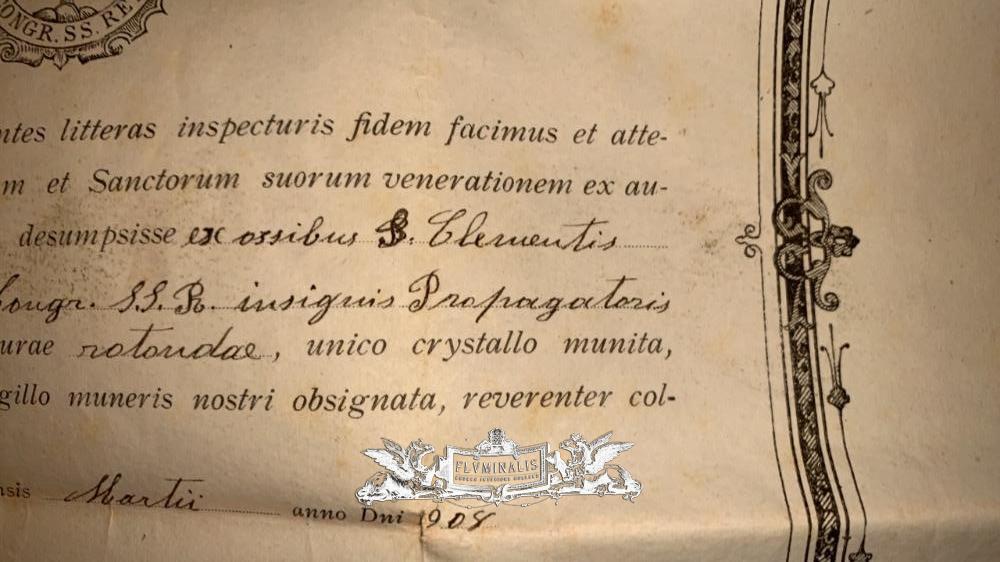 ONGR. SS. RE
ntes litteras inspecturis fidem facimus et atte-
m et Sanctorum suorum venerationem ex au-
desumpsisse ex ossibus B. Clementis
Congr. SS. R. insignis Propagatoris
urae rotondae, unico crystallo munita,
gillo muneris nostri obsignata, reverenter col-
FLVMINALIS
nsis Martii anno Dni 1908